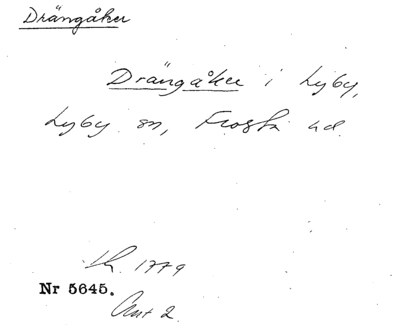 Drängåker
Drängåker i Lyby,
Lyby sn, Frosta hd.
1779
Nr 5645.
Akt 2